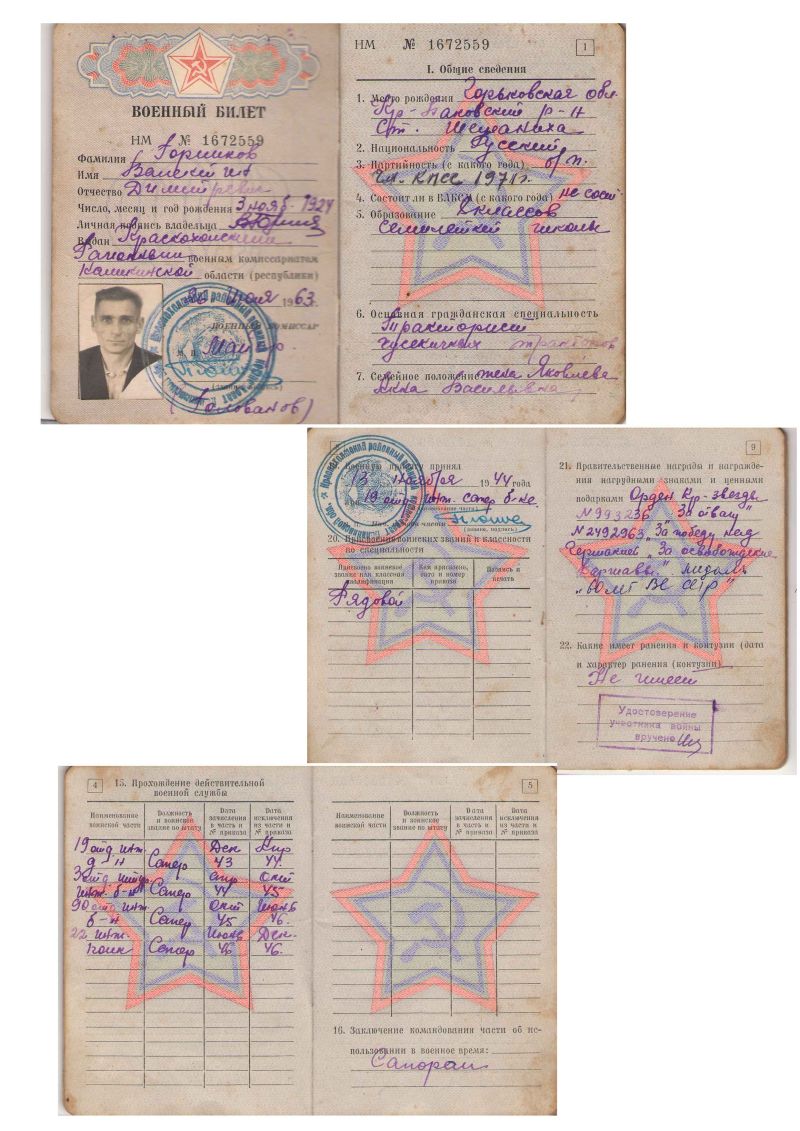 ВОЕННЫЙ БИЛЕТ
НМ № 1672559
Фамилия Горшков
Имя
Отчество Димитревич
Число, месяц и год рождения 3 нояб. 1924
Личная подпись владельца
Выдан Краснохолмским
Районным военным комиссариатом
Калининской области (республики)
Июля 1963.
ВОЕННЫЙ КОМИССАР
М. П. Майор
(Голованов)
НМ № 1672559
1
I. Общие сведения
1. Место рождения Горьковская обл.
Кр-Баковский р-н
Ст. Шеманиха
2. Национальность Русский
3. Партийность (с какого года) б/п.
Чл. КПСС 1971г.
4. Состоит ли в ВЛКСМ (с какого года) не сост.
5. Образование классов
Семилетней школы
6. Основная гражданская специальность
Тракторист
гусеничных тракторов
7. Семейное положение жена Яковлева
Анна Васильевна
Военную присягу принял
13 Ноября 1944 года
19 отд. инж. сапер. б-не
20. Присвоение воинских званий и классности
по специальности
Присвоено воинское звание или классная квалификация
Кем присвоено, дата и номер приказа
Подпись и печать
Рядовой
9
21. Правительственные награды и награжде-
ния нагрудными знаками и ценными
подарками Орден Кр-звезды
№993236 "За отвагу"
№2492963 "За победу над
Германией" "За освобождение
Варшавы" медаль
"60 лет ВС СССР"
22. Какие имеет ранения и контузии (дата
и характер ранения (контузии)
Не имеет
Удостоверение
участника войны
вручено
4
15. Прохождение действительной
военной службы
Наименование воинской части
Должность и воинское звание по штату
Дата зачисления в часть и № приказа
Дата исключения из части и № приказа
19 отд. инж. Дек
б-н Сапер 43 44.
3 отд. штур. апр Окт
инж. б-н Сапер 44 45
90 отд. инж. Окт Июнь
б-н Сапер 45 46.
22 инж. Июнь Дек.
Сапер 46 46.
5
Наименование воинской части
Должность и воинское звание по штату
Дата зачисления в часть и № приказа
Дата исключения из части и № приказа
16. Заключение командования части об ис-
пользовании в военное время:
Сапером